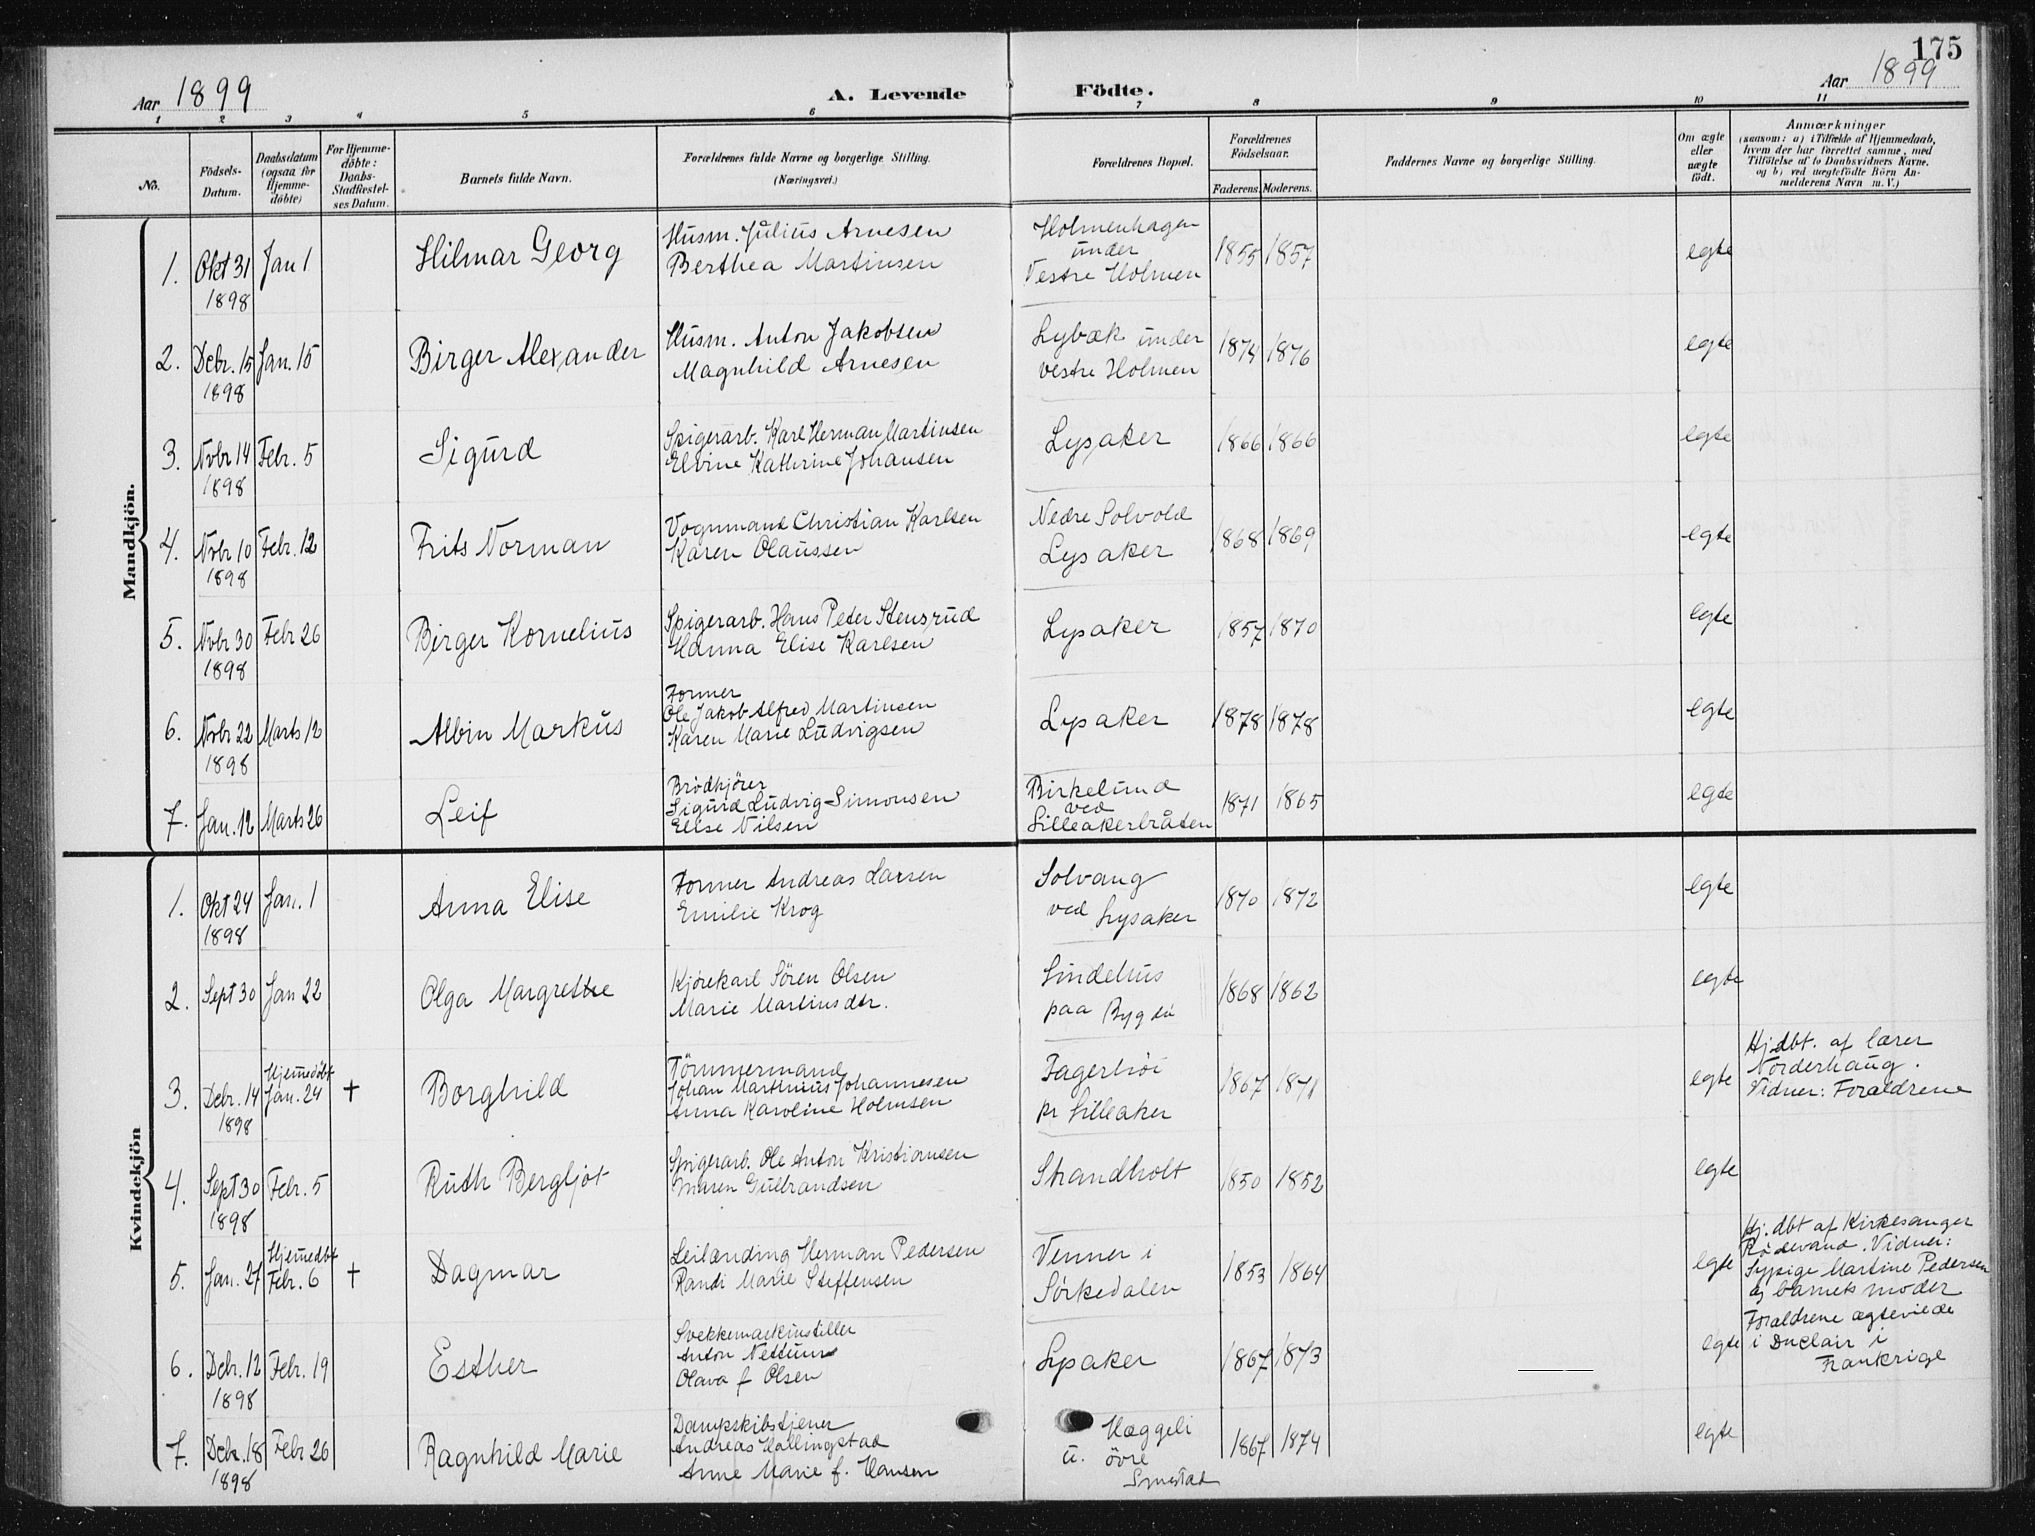 175
Aar 1899
A. Levende Födte.
Aar 1899
1 2 3 4 5 6 7 8 9 10 11
No.
Födsels-Datum.
Daabsdatum (ogsaa for Hjemme-döbte)
For Hjemme-döbte: Daabs-Stadfæstel-ses Datum.
Barnets fulde Navn.
Forældrenes fulde Navne og borgerlige Stilling. (Næringsvei.)
Forældrenes Bopæl.
Forældrenes Födselsaar.
Faderens. Moderens.
Faddernes Navne og borgerlige Stilling.
Om ægte eller uægte födt.
Anmærkninger
(saasom: a) i Tilfælde af Hjemmedaab, hvem der har forrettet samme, med Tilföielse af to Daabsvidners Navne. og b) ved uægtefödte Börn Anmelderens Navn m. V.)
Mandkjön.
1. Okt 31 1898 Jan 1 Hilmar Georg Husm. Julius Arnesen Berthea Martinsen Holmenhagen under Vestre Holmen 1855 1857 egte
2. Debr. 15 1898 Jan. 15 Birger Alexander Husm. Anton Jakobsen Magnhild Arnesen Lybæk under vestre Holmen 1874 1876 egte
3. Novbr 14 1898 Febr. 5 Sigurd Spigerarb. Karl Herman Martinsen Elvine Kathrine Johansen Lysaker 1866 1866 egte
4. Novbr 10 1898 Febr. 12 Frits Norman Vognmand Christian Karlsen Karen Olaussen Nedre Solvold Lysaker 1868 1869 egte
5. Novbr 30 1898 Febr 26 Birger Kornelius Spigerarb. Hans Peter Stensrud Hanna Elise Karlsen Lysaker 1857 1870 egte
6. Novbr 22 1898 Marts 12 Albin Markus Former Ole Jakob Alfred Martinsen Karen Marie Ludvigsen Lysaker 1878 1878 egte
7. Jan. 12 Marts 26 Leif Brødkjører Sigurd Ludvig Simonsen Elise Nilsen Birkelund ved Lilleakerbråten 1871 1865 egte
Kvindekjön
1. Okt 24 1898 Jan. 1 Anna Elise Former Andreas Larsen Emilie Krog Solvang ved Lysaker 1870 1872 egte
2. Sept 30 Jan 22 Olga Margrethe Kjørekarl Sören Olsen Marie Martinsdtr. Lindehus paa Bygdö 1868 1862 egte
3. Debr. 14 1898 Hjemedöbt Jan. 24 + Borghild Tömmermand Johan Martinius Johannesen Anna Karoline Holmsen Fagerhöi pr Lilleaker 1867 1871 egte Hj.dbt. af lærer Norderhaug. Vidner: Forældrene
4. Sept 30 1898 Febr. 5 Ruth Bergljot Spigerarb. Ole Anton Kristiansen Maren Gulbrandsen Strandholt 1850 1852 egte
5. Jan. 27 Hjemedbt Febr. 6 + Dagmar Leilænding Herman Pedersen Randi Marie Steffensen Venner i Sørkedalen 1853 1864 egte Hj. dbt af Kirkesanger Rødevand. Vidner: Sypige Martine Pedersen og barnets moder
6. Debr. 12 1898 Febr. 19 Esther Svekkemaskinstiller Anton Nettum Olava f Olsen Lysaker 1867 1873 egte Forældrene ægteviede i Duclair i Frankrige
7. Debr. 18 1898 Febr 26 Ragnhild Marie Dampskibstjener Andreas Hallingstad Anne Marie f. Hansen Hæggeli u. övre Smestad 1867 1874 egte